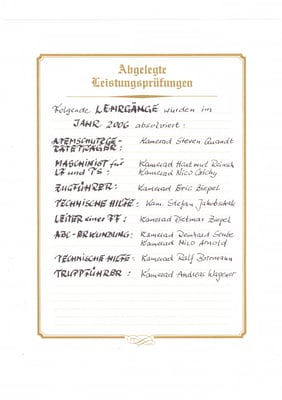 Abgelegte
Leistungsprüfungen
Folgende LEHRGÄNGE wurden im
JAHR 2006 absolviert:
ATEMSCHUTZGE-
RÄTETRÄGER: Kamerad Steven Quandt
MASCHINIST für Kamerad Hartmut
LF und TS: Kamerad Nico
ZUGFÜHRER: Kamerad Eric Biepel
TECHNISCHE HILFE: Kam. Stefan
LEITER einer FF: Kamerad Dietmar Biepel
ABC-ERKUNDUNG: Kamerad Reinhard
Kamerad Nico Arnold
TECHNISCHE HILFE: Kamerad Ralf Borrmann
TRUPPFÜHRER: Kamerad Andreas Wagener